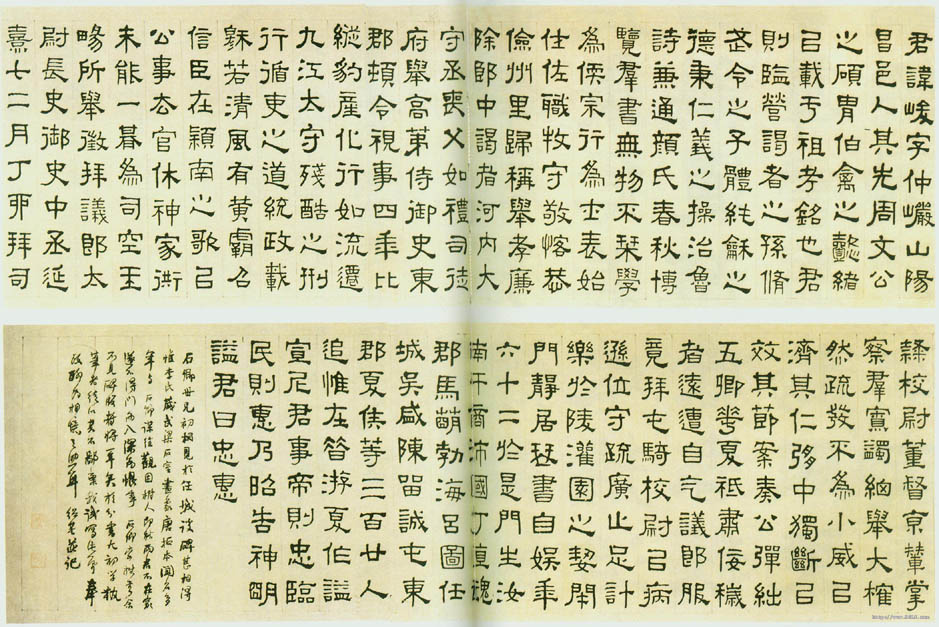 君諱峻字仲巖山陽
昌邑人其先周文公
之碩冑伯禽之懿緒
㠯載于祖考銘也君
則臨營謁者之孫脩
武令之子體純龢之
德秉仁義之操治魯
詩兼通顏氏春秋博
覽羣書無物不栞學
為偄宗行為士表始
仕佐職牧守敬恪恭
儉州里歸稱舉孝廉
除郎中謁者河内大
守丞喪父如禮司徒
府舉高第侍御史東
郡頓令視事四年比
縱豹產化行如流遷
九江太守殘酷之刑
行循吏之道統政載
穌若清風有黃霸召
信臣在潁南之歌㠯
公事去官休神家衖
未能一朞為司空王
暢所舉徵拜議郎太
尉長史御史中丞延
熹七二月丁卯拜司
隸校尉董督京輦掌
察羣寮蠲細舉大榷
然疏發不為小威㠯
濟其仁弸中獨斷㠯
效其節案奏公彈絀
五卿華夏祗肅佞穢
者遠遭自乞議郎服
竟拜屯騎校尉㠯病
遜位守疏廣止足計
樂於陵灌園之契閑
門靜居琴書自娛年
六十二於是門生汝
南干商沛國丁直魏
郡馬萌勃海呂圖任
城吳盛陳留誠屯東
郡夏侯等三百廿人
追惟在昔游夏作謚
宣尼君事帝則忠臨
民則惠乃昭告神明
謚君曰忠惠
石卿世兄初相見於任城談碑甚相得
惟李氏藏武梁石室畫象唐拓本